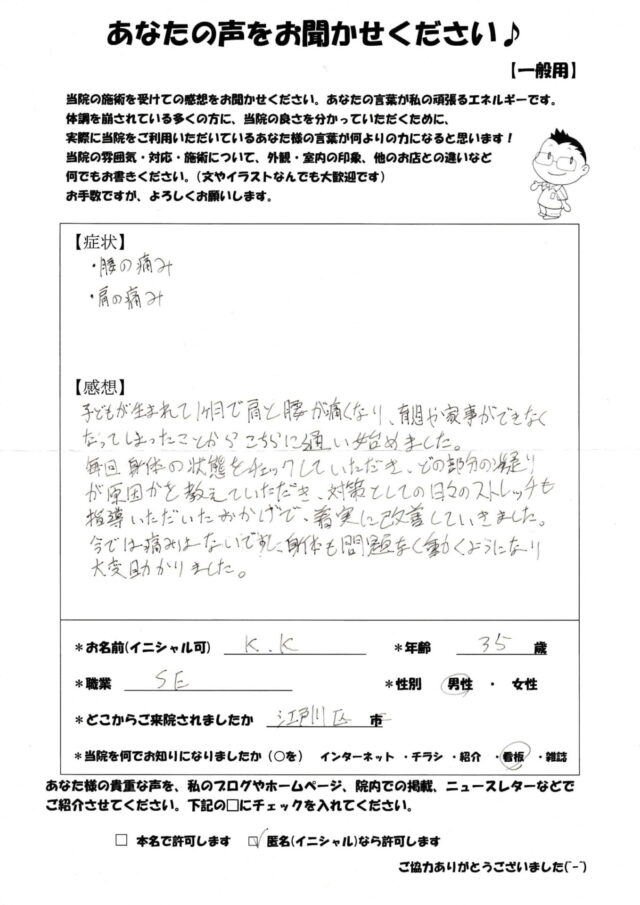 あなたの声をお聞かせください♪
【一般用】
当院の施術を受けての感想をお聞かせください。あなたの言葉が私の頑張るエネルギーです。
体調を崩されている多くの方に、当院の良さを分かっていただくために、
実際に当院をご利用いただいているあなた様の言葉が何よりの力になると思います！
当院の雰囲気・対応・施術について、外観・室内の印象、他のお店との違いなど
何でもお書きください。（文やイラストなんでも大歓迎です）
お手数ですが、よろしくお願いします。
【症状】
・腰の痛み
・肩の痛み
【感想】
子どもが生まれて1ヶ月で肩と腰が痛くなり、育児や家事ができなく
なってしまったことからこちらに通い始めました。
毎回身体の状態をチェックしていただき、どの部分の凝り
が原因かを教えていただき、対策としての日々のストレッチも
指導いただいたおかげで、着実に改善していきました。
今では痛みはないですし、身体も問題なく動くようになり
大変助かりました。
＊お名前(イニシャル可) K.K ＊年齢 35 歳
＊職業 SE ＊性別 男性 ・ 女性
＊どこからご来院されましたか 江戸川区 市
＊当院を何でお知りになりましたか（○を） インターネット ・チラシ ・紹介 ・看板 ・雑誌
あなた様の貴重な声を、私のブログやホームページ、院内での掲載、ニュースレターなどで
ご紹介させてください。下記の□にチェックを入れてください。
□ 本名で許可します ☑ 匿名(イニシャル)なら許可します
ご協力ありがとうございました(^-^)